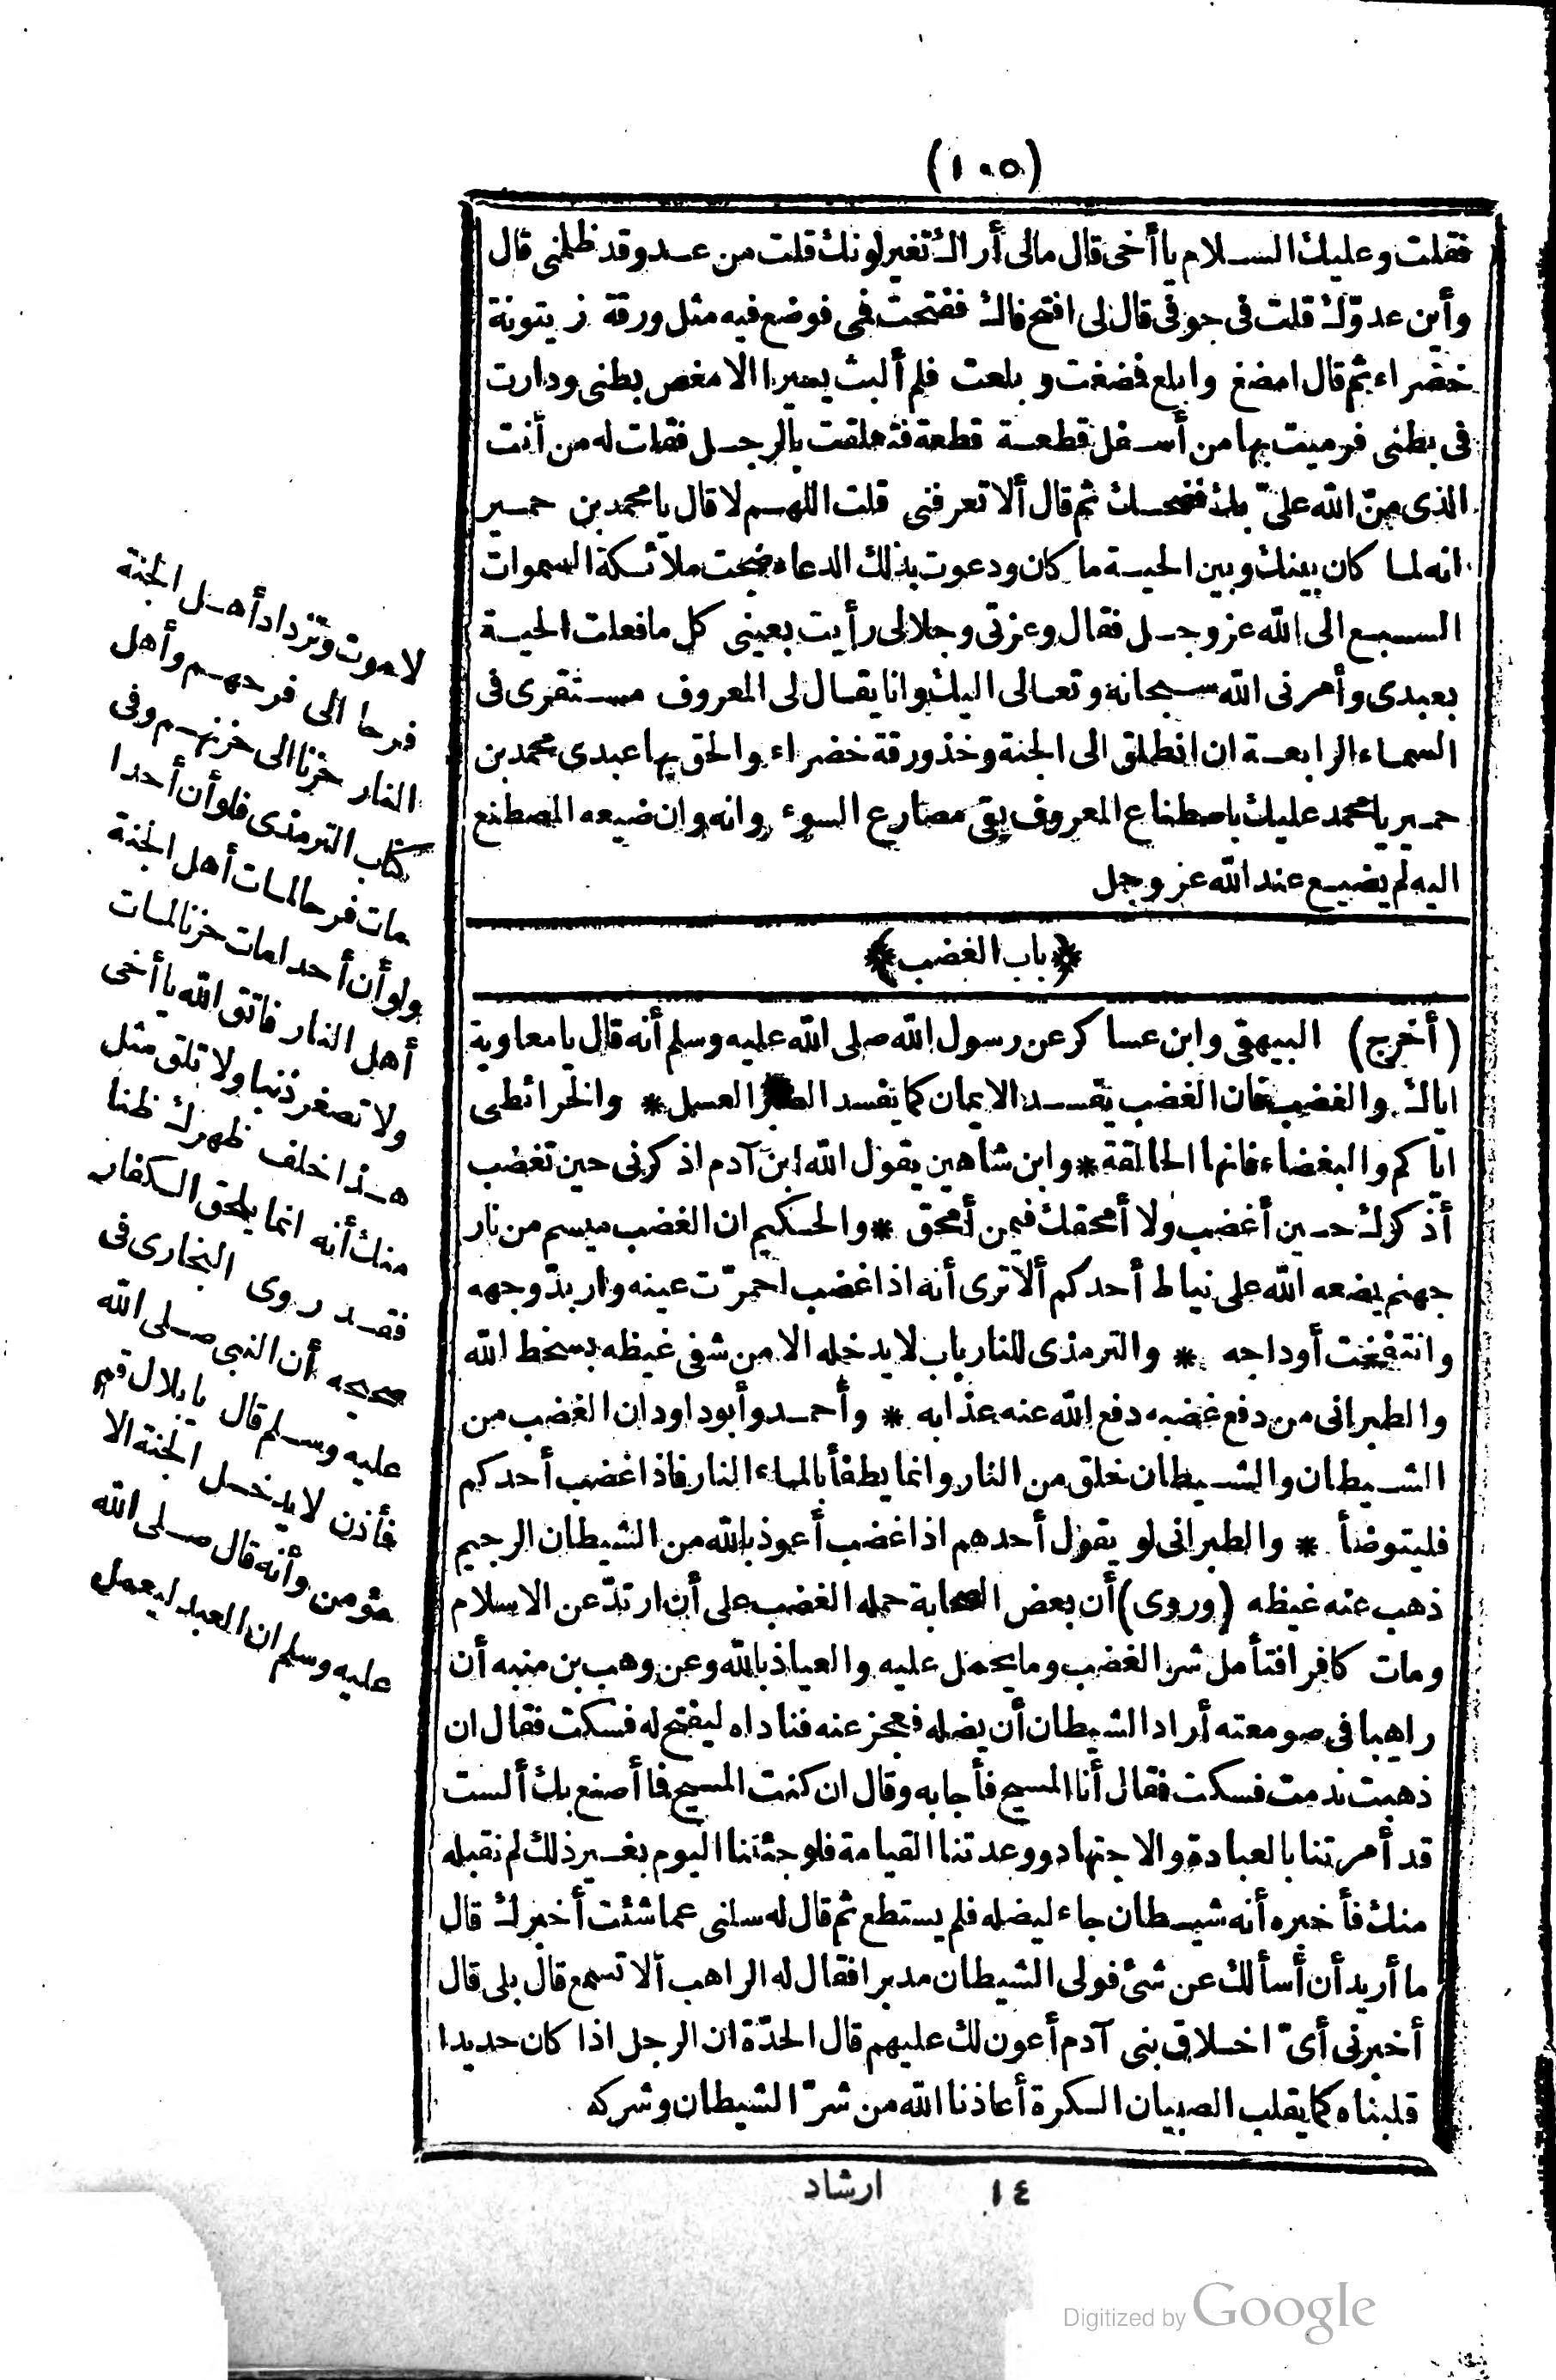 (١٠٥)
فقلت وعليك السلام يا أخى قال مالى أراك تغير لونك قلت من عدو قد ظلمنى قال
وأين عدوّك قلت فى جوفى قال لى افتح فاك ففتحت فمى فوضع فيه مثل ورقة زيتونة
خضراء ثم قال امضغ وابلع فمضغت وبلعت فلم ألبث يسيرا الا مغص بطنى ودارت
فى بطنى فرميت بها من أسفل قطعة قطعة فتعلقت بالرجل فقلت له من أنت
الذى منّ الله علىّ بك فضحك ثم قال ألا تعرفنى قلت اللهم لا قال يا محمد بن حمير
انه لما كان بينك وبين الحية ما كان ودعوت بذلك الدعاء ضجت ملائكة السموات
السبع الى الله عز وجل فقال وعزتى وجلالى رأيت بعينى كل ما فعلت الحية
بعبدى وأمرنى الله سبحانه وتعالى اليك وانا يقال لى المعروف مستقرى فى
السماء الرابعة ان انطلق الى الجنة وخذ ورقة خضراء والحق بها عبدى محمد بن
حمير يا محمد عليك باصطناع المعروف يقى مصارع السوء وانه وان ضيعه المصطنع
اليه لم يضيع عند الله عز وجل
﴿باب الغضب﴾
(أخرج) البيهقى وابن عساكر عن رسول الله صلى الله عليه وسلم أنه قال يا معاوية
اياك والغضب فان الغضب يفسد الايمان كما يفسد الصبر العسل * والخرائطى
اياكم والبغضاء فانها الحالقة * وابن شاهين يقول الله ابن آدم اذكرنى حين تغضب
أذكرك حين أغضب ولا أمحقك فيمن أمحق * والحكيم ان الغضب ميسم من نار
جهنم يضعه الله على نياط أحدكم ألا ترى أنه اذا غضب احمرّت عينه واربدّ وجهه
وانتفخت أوداجه * والترمذى للنار باب لا يدخله الا من شفى غيظه بسخط الله
والطبرانى من دفع غضبه دفع الله عنه عذابه * وأحمد وأبو داود ان الغضب من
الشيطان والشيطان خلق من النار وانما يطفأ بالماء النار فاذا غضب أحدكم
فليتوضأ * والطبرانى لو يقول أحدهم اذا غضب أعوذ بالله من الشيطان الرجيم
ذهب عنه غيظه (وروى) أن بعض الصحابة حمله الغضب على أن ارتدّ عن الاسلام
ومات كافرا فتأمل شر الغضب وما يحمل عليه والعياذ بالله وعن وهب بن منبه أن
راهبا فى صومعته أراد الشيطان أن يضله فعجز عنه فناداه ليفتح له فسكت فقال ان
ذهبت ندمت فسكت فقال أنا المسيح فأجابه وقال ان كنت المسيح فما أصنع بك ألست
قد أمرتنا بالعبادة والاجتهاد ووعدتنا القيامة فلو جئتنا اليوم بغير ذلك لم نقبله
منك فأخبره أنه شيطان جاء ليضله فلم يستطع ثم قال له سلنى عما شئت أخبرك قال
ما أريد أن أسألك عن شئ فولى الشيطان مدبرا فقال له الراهب ألا تسمع قال بلى قال
أخبرنى أىّ اخلاق بنى آدم أعون لك عليهم قال الحدّة ان الرجل اذا كان حديدا
قلبناه كما يقلب الصبيان الكرة أعاذنا الله من شرّ الشيطان وشركه
١٤ ارشاد
لاموت وتزداد أهل الجنة
فرحا الى فرحهم وأهل
النار حزنا الى حزنهم وفى
كتاب الترمذى فلو أن أحدا
مات فرحا لمات أهل الجنة
ولو أن أحدا مات حزنا لمات
أهل النار فاتق الله يا أخى
ولا تصغر ذنبا ولا تلق مثل
هذا خلف ظهرك ظنا
منك أنه انما يلحق الكفار
فقد روى البخارى فى
صحيحه أن النبى صلى الله
عليه وسلم قال يا بلال قم
فأذن لا يدخل الجنة الا
مؤمن وأنه قال صلى الله
عليه وسلم ان العبد ليعمل
Digitized by Google